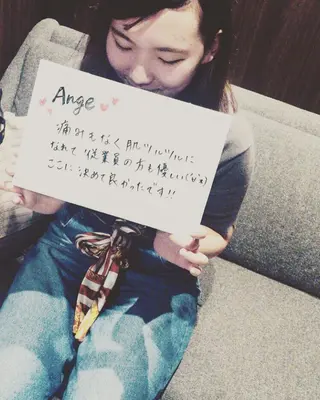 Ange
痛みもなく肌ツルツルに
なれて従業員の方も優しい(*´ω`*)
ここに決めて良かったです!!